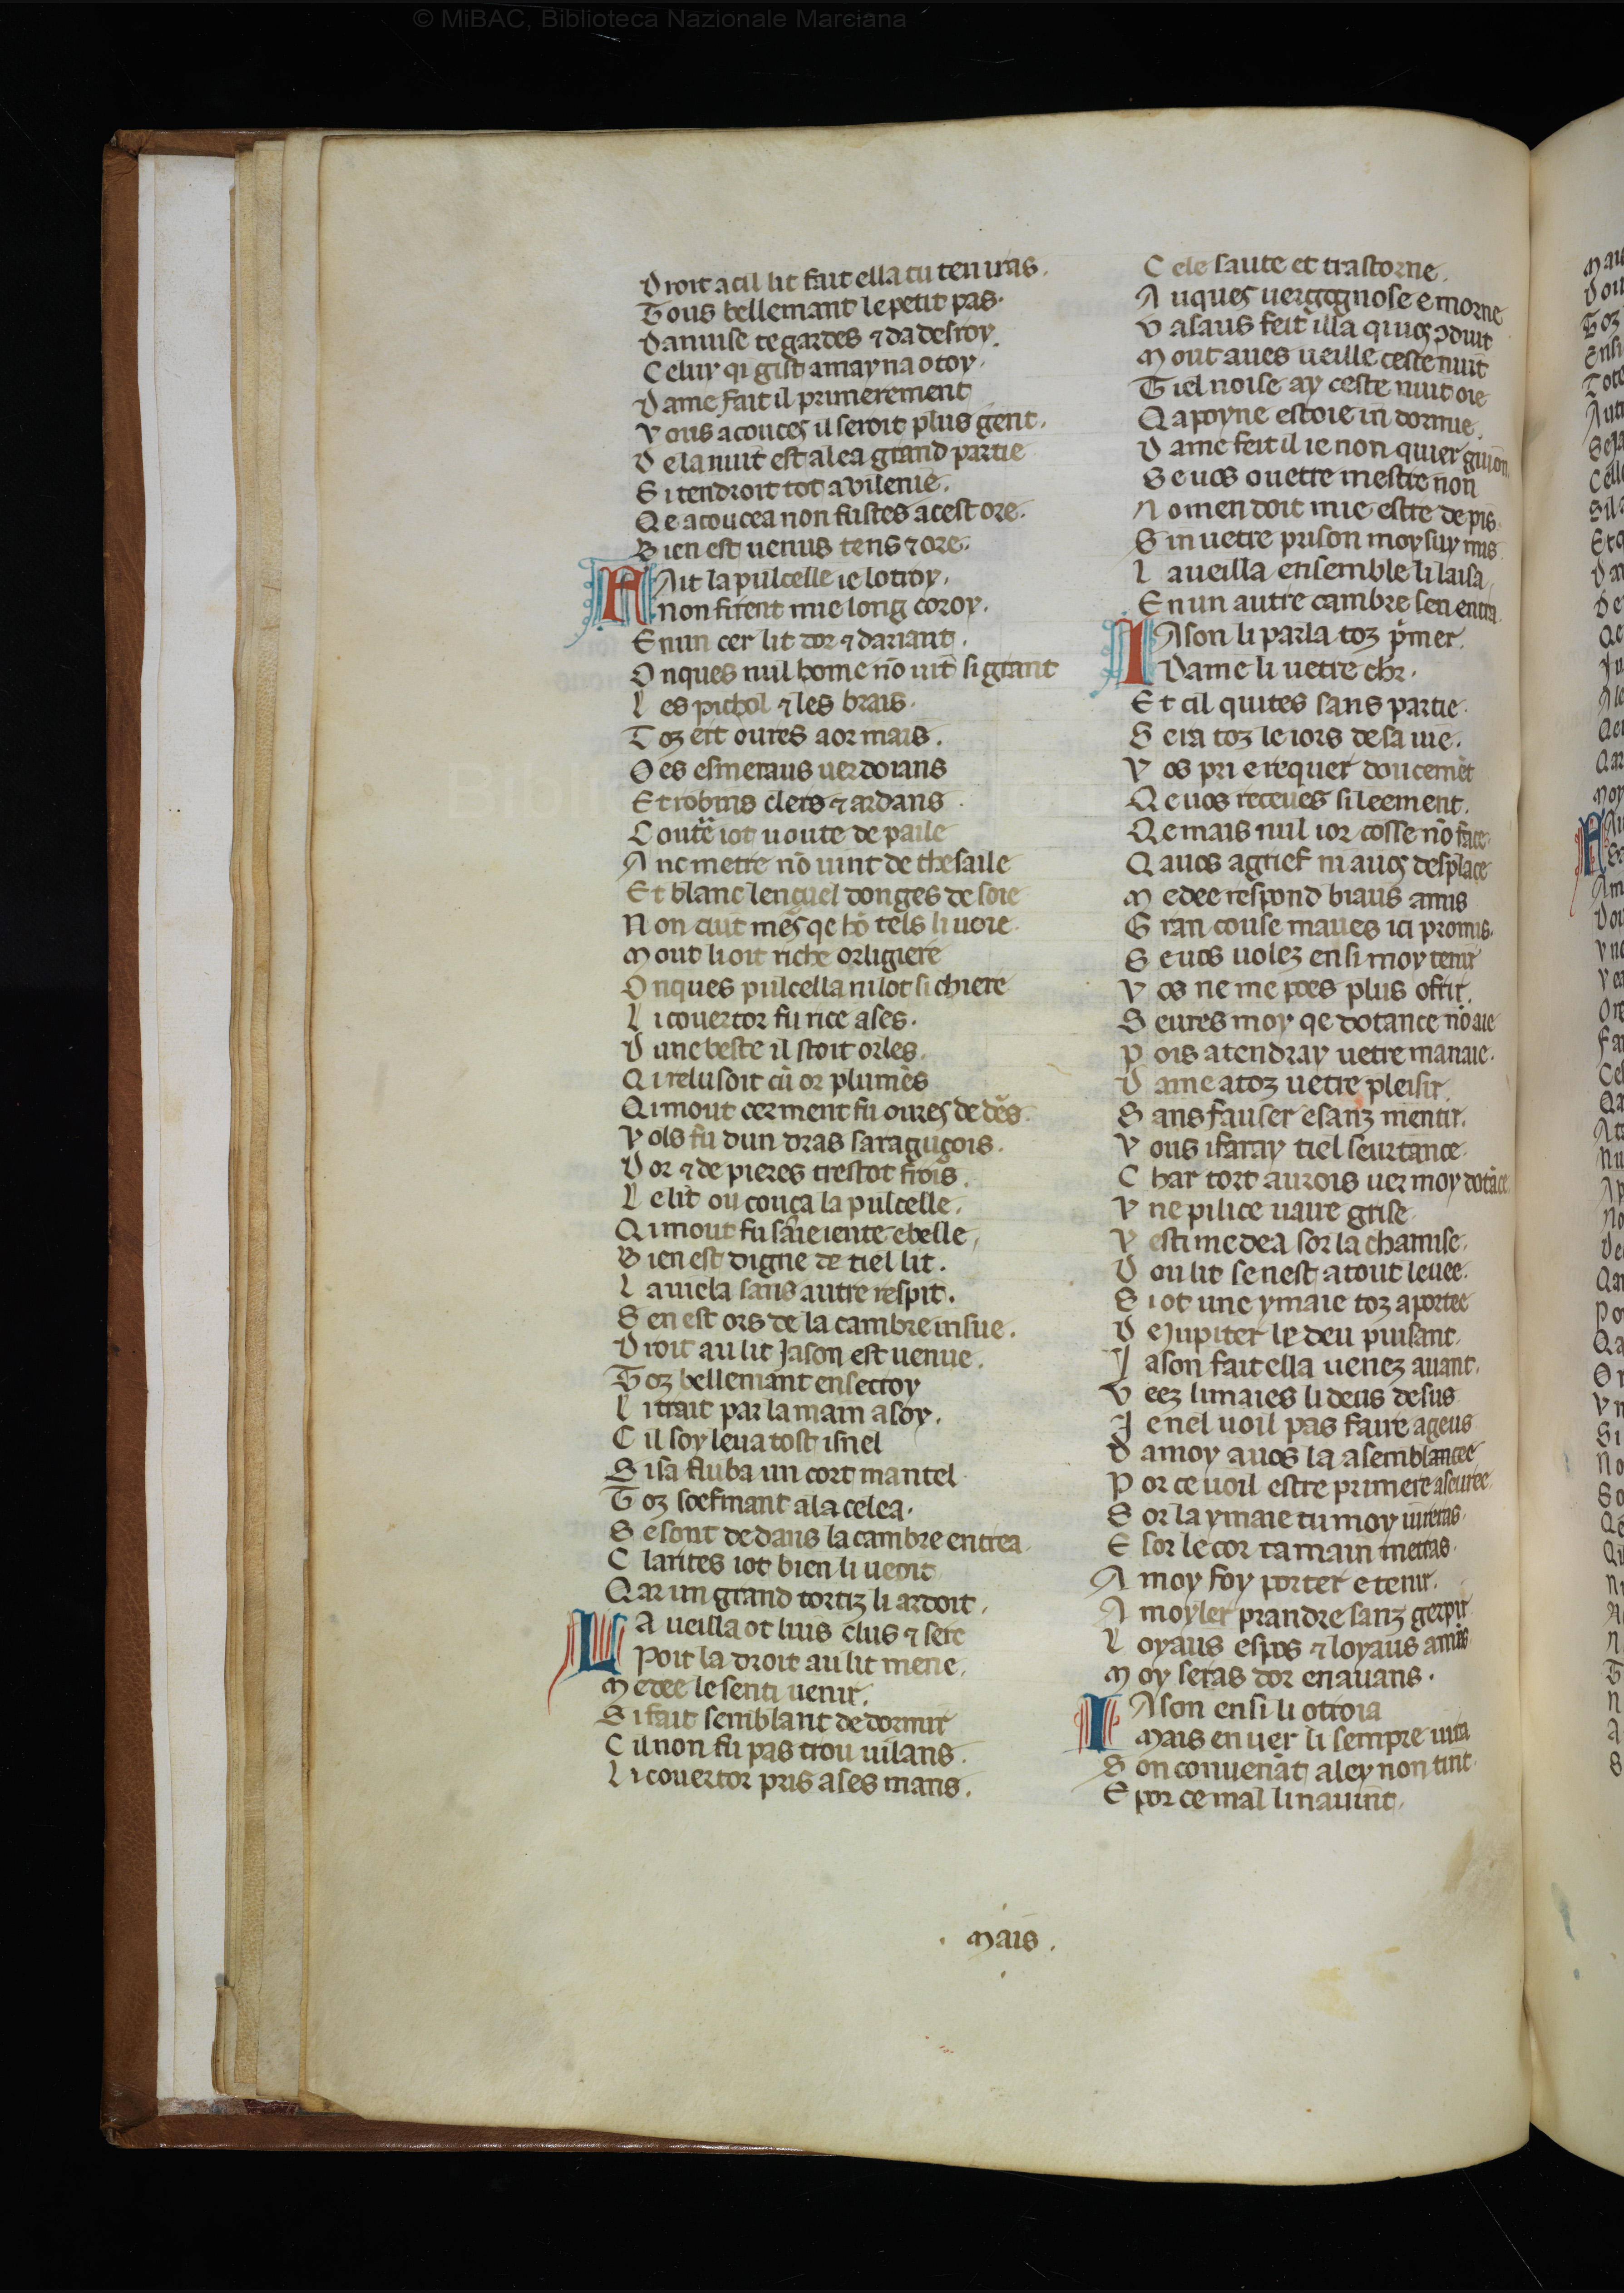 © MiBAC, Biblioteca Nazionale Marciana
Droit a cil lit fait ella tu ten iras.
Tous bellemant le petit pas.
Danuise te gardes ⁊ da desroy.
Celuy qi gist a may na o toy.
Dame fait il primerement
Vous acouceç il seroit plus gent.
De la nuit est alea grand partie
Si tendroit tot a vilenie.
Qe acoucea non fustes a cest ore.
Bien est uenus tens ⁊ ore.
FAit la pulcelle ie lotroy.
non firent mie long coroy.
En un cer lit dor ⁊ dariant.
Onques nul home nō uit si grant
Les pichol ⁊ les brais.
Toz ert oures a or mais.
Des esmeraus uerdoians
Et robins clers ⁊ ardans.
iot uoute de paile
Anc mettre nō uint de thesaile
Et blanc lençuel donges de soie
Non cuit qe tels li uoie.
Mout li oit riche orligiere
Onques pulcella ni lot si chiere
Li couertor fu rice ases.
Dune beste il stoit orles.
Qi relusoit cū or plumes
Qi mout cerment fu oureç de
Vols fu dun dras saraguçois.
Dor ⁊ de pieres trestot frois.
Le lit ou couça la pulcelle.
Qi mout fu ieiente e belle,
Bien est digne de tiel lit.
La uiela sans autre respit.
Sen est ors de la cambre insue.
Droit au lit Jason est uenue.
Toz bellemant en secroy
Li trait par la main a soy.
Cil soy leua tost isnel
Si sa fluba un cort mantel
Toz soefmant a la celea.
Se sont dedans la cambre entrea.
Clartes iot bien li ueoit
Qar un grand tortiz li ardoit.
LA ueilla ot luis clus ⁊ sere
Poit la droit au lit mene.
Medee le senti uenir.
Si fait semblant de dormir
Cil non fu pas trou uilans.
Li couertor pris a ses mans.
Cele saute et trastorne.
Auqueç uergognose e morne
Vasaus feit illa qi uoç ꝯduit
Mout aues ueille ceste nuit
Tiel noise ay ceste nuit oie
Qa poyne estoie in dormie.
Dame feit il ie non quier guion
Se uos o uetre mestre non
No men doit mie estre de pis
S in uetre prison moy suy mis.
La ueilla ensemble li laisa
En un autre cambre sen entra.
IAson li parla toz p̄mer.
Dame li uetre chr.
Et cil quites sans partie.
Sera toz le iors de sa uie.
Vos pri e requer doucemēt
Qe uos receues si leement.
Qe mais nul ior cosse nō face
Qa uos agrief ni a uoç desplaçe
Medee respond biaus amis
Gran couse maues ici promis.
Se uos uolez ensi moy tenir
Vos ne me poes plus ofrir.
Seures moy qe dotance nō aie
Pois atendray uetre manaie.
Dame a toz uetre pleisir
Sans fauser e sanz mentir.
Vous ifaray tiel seurtance.
Char tort aurois uer moy dotāce.
Vne pilice uaire grise
Vesti medea sor la chamise.
Dou lit senest a tout leuee.
Si ot une ymaie toz aportee
De Jupiter le deu puisant.
Jason fait ella uenez auant.
Veez limaies li deus desus
Je nel uoil pas faire a geus
Da moy a uos la asemblançee
Por ce uoil estre primere aseuree.
Sor la ymaie tu moy iureras.
E sor le cor ta main metras.
A moy foy porter e tenir.
A moyler prandre sanz gerpir
Loyaus espos ⁊ loyaus amis
Moy seras dor en auans.
IAson ensi li otroia
Mais en uer li sempre uira
Son conuenāt a ley non tint.
E por ce mal li nauint.
Mais.